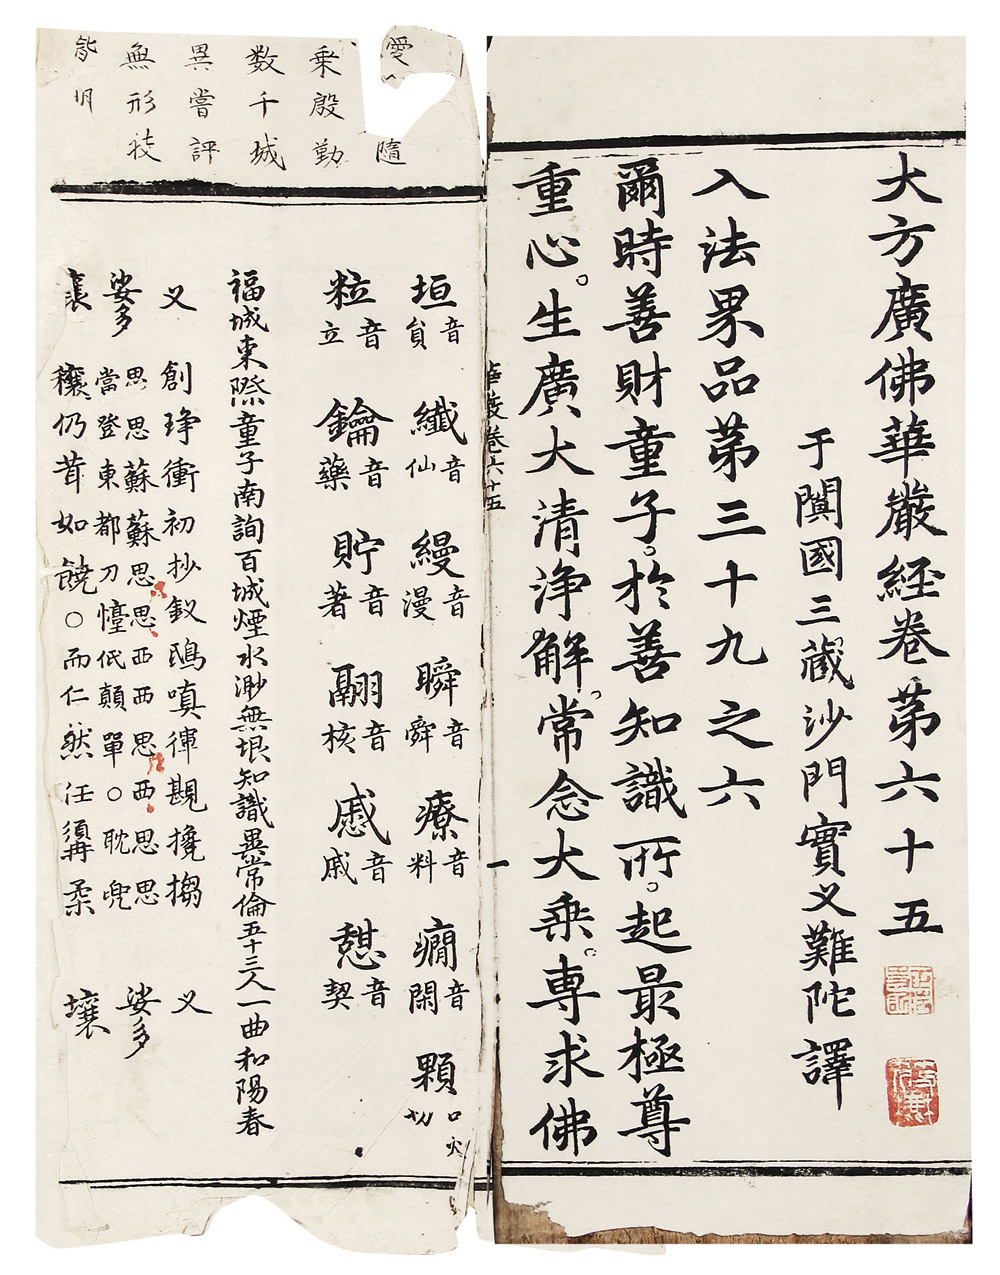 大方廣佛華嚴經卷苐六十五
于闐國三藏沙門實叉難陀譯
入法界品苐三十九之六
爾時善財童子於善知識所起最極尊
重心。生廣大清淨解。常念大乘。専求佛
華嚴卷六十五
一
愛
隨
乗殷勤
数千城
異嘗評
無形技
能明
垣 負音 纖 仙音 縵 漫音 瞬 舜音 療 料音 癇 閑音 顆 口火切
粒 立音 鑰 藥音 貯 著音 翮 核音 慼 戚音 憇 契音
福城東際童子南詢百城煙水渺無垠知識異常倫五十三人一曲和陽春
义 創琤衝初抄釵鴟嗔 觀攙搊 义
娑多 思思蘇蘇思思西西思西思思 娑多
當登東都刀憕低顛單○耽兜
穰仍茸如饒○而仁然任 柔 壤